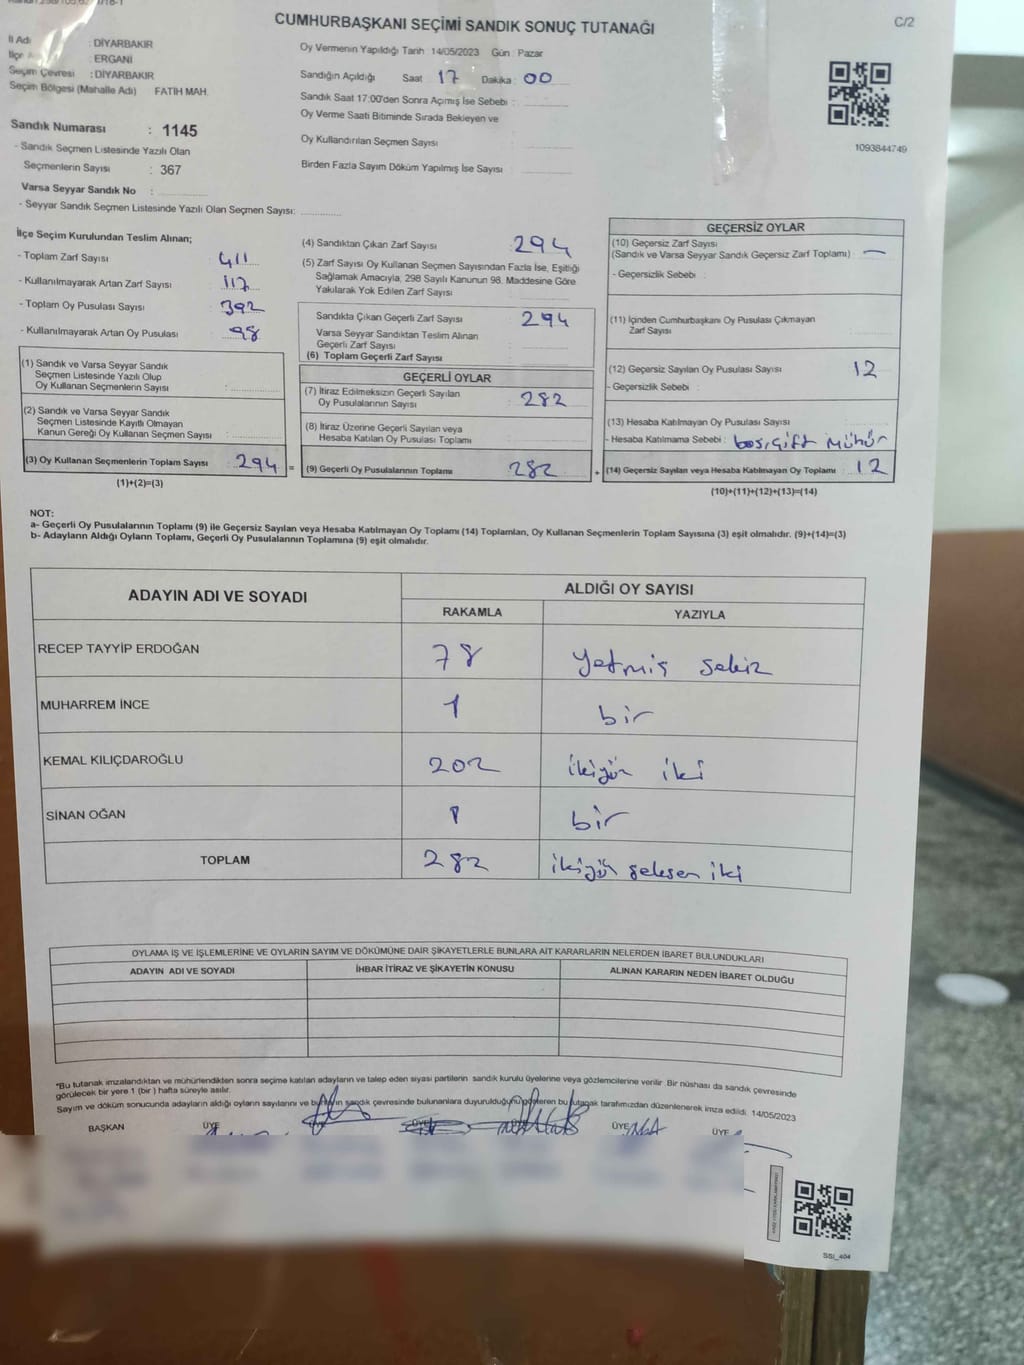 CUMHURBAŞKANI SEÇİMİ SANDIK SONUÇ TUTANAĞI
C/2
İl Adı : DİYARBAKIR
İlçe : ERGANİ
Seçim Çevresi : DİYARBAKIR
Seçim Bölgesi (Mahalle Adı) FATİH MAH.
Sandık Numarası : 1145
- Sandık Seçmen Listesinde Yazılı Olan
Seçmenlerin Sayısı : 367
Varsa Seyyar Sandık No :
- Seyyar Sandık Seçmen Listesinde Yazılı Olan Seçmen Sayısı:
Oy Vermenin Yapıldığı Tarih : 14/05/2023 Gün : Pazar
Sandığın Açıldığı Saat : 17 Dakika : 00
Sandık Saat 17:00'den Sonra Açımış İse Sebebi :
Oy Verme Saati Bitiminde Sırada Bekleyen ve
Oy Kullandırılan Seçmen Sayısı
Birden Fazla Sayım Döküm Yapılmış İse Sayısı
1093844749
İlçe Seçim Kurulundan Teslim Alınan;
- Toplam Zarf Sayısı : 411
- Kullanılmayarak Artan Zarf Sayısı : 117
- Toplam Oy Pusulası Sayısı : 392
- Kullanılmayarak Artan Oy Pusulası : 98
(1) Sandık ve Varsa Seyyar Sandık
Seçmen Listesinde Yazılı Olup
Oy Kullanan Seçmenlerin Sayısı :
(2) Sandık ve Varsa Seyyar Sandık
Seçmen Listesinde Kayıtlı Olmayan
Kanun Gereği Oy Kullanan Seçmen Sayısı :
(3) Oy Kullanan Seçmenlerin Toplam Sayısı : 294 =
(1)+(2)=(3)
(4) Sandıktan Çıkan Zarf Sayısı : 294
(5) Zarf Sayısı Oy Kullanan Seçmen Sayısından Fazla İse, Eşitliği
Sağlamak Amacıyla, 298 Sayılı Kanunun 98. Maddesine Göre
Yakılarak Yok Edilen Zarf Sayısı :
Sandıkta Çıkan Geçerli Zarf Sayısı : 294
Varsa Seyyar Sandıktan Teslim Alınan
Geçerli Zarf Sayısı
(6) Toplam Geçerli Zarf Sayısı
GEÇERLİ OYLAR
(7) İtiraz Edilmeksizin Geçerli Sayılan
Oy Pusulalarının Sayısı : 282
(8) İtiraz Üzerine Geçerli Sayılan veya
Hesaba Katılan Oy Pusulası Toplamı
(9) Geçerli Oy Pusulalarının Toplamı : 282 +
GEÇERSİZ OYLAR
(10) Geçersiz Zarf Sayısı
(Sandık ve Varsa Seyyar Sandık Geçersiz Zarf Toplamı) : —
- Geçersizlik Sebebi :
(11) İçinden Cumhurbaşkanı Oy Pusulası Çıkmayan
Zarf Sayısı
(12) Geçersiz Sayılan Oy Pusulası Sayısı : 12
- Geçersizlik Sebebi :
(13) Hesaba Katılmayan Oy Pusulası Sayısı :
- Hesaba Katılmama Sebebi : boş, çift mühür
(14) Geçersiz Sayılan veya Hesaba Katılmayan Oy Toplamı : 12
(10)+(11)+(12)+(13)=(14)
NOT:
a- Geçerli Oy Pusulalarının Toplamı (9) ile Geçersiz Sayılan veya Hesaba Katılmayan Oy Toplamı (14) Toplamları, Oy Kullanan Seçmenlerin Toplam Sayısına (3) eşit olmalıdır. (9)+(14)=(3)
b- Adayların Aldığı Oyların Toplamı, Geçerli Oy Pusulalarının Toplamına (9) eşit olmalıdır.
ADAYIN ADI VE SOYADI ALDIĞI OY SAYISI
RAKAMLA YAZIYLA
RECEP TAYYİP ERDOĞAN 78 yetmiş sekiz
MUHARREM İNCE 1 bir
KEMAL KILIÇDAROĞLU 202 ikiyüz iki
SİNAN OĞAN 1 bir
TOPLAM 282 ikiyüz seksen iki
OYLAMA İŞ VE İŞLEMLERİNE VE OYLARIN SAYIM VE DÖKÜMÜNE DAİR ŞİKAYETLERLE BUNLARA AİT KARARLARIN NELERDEN İBARET BULUNDUKLARI
ADAYIN ADI VE SOYADI İHBAR İTİRAZ VE ŞİKAYETİN KONUSU ALINAN KARARIN NEDEN İBARET OLDUĞU
*Bu tutanak imzalandıktan ve mühürlendikten sonra seçime katılan adayların ve talep eden siyasi partilerin sandık kurulu üyelerine veya gözlemcilerine verilir. Bir nüshası da sandık çevresinde
görülecek bir yere 1 (bir ) hafta süreyle asılır.
Sayım ve döküm sonucunda adayların aldığı oyların sayılarını ve bunların sandık çevresinde bulunanlara duyurulduğunu gösteren bu tutanak tarafımızdan düzenlenerek imza edildi. 14/05/2023
BAŞKAN ÜYE ÜYE ÜYE
SSI_404